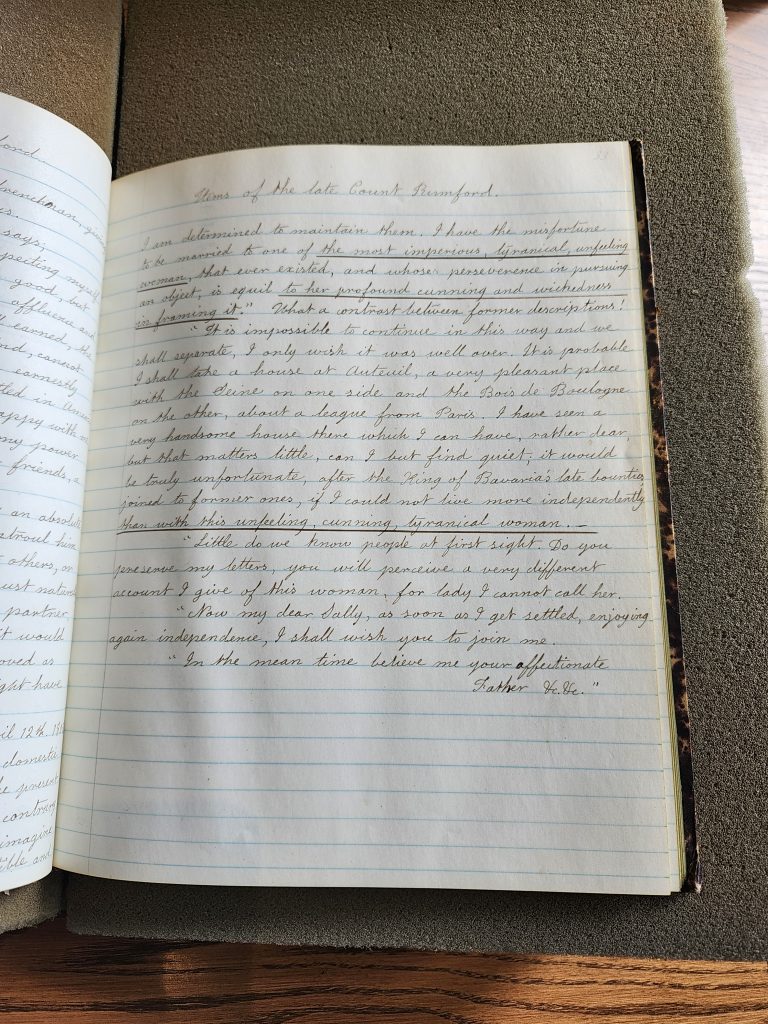 ford.
Frenchman, give
says;
specting myself
good, but
affluence and
earned, the
nd, cannot
earnestly
tled in Amer
appy with m
my power
friends, a
an absolute
stroul him
others, or
ust natur
partner,
it would
oved as
ight have
il 12th 18
domestic
e present
contrary
imagine
ible and
33
Items of the late Count Rumford.
I am determined to maintain them. I have the misfortune
to be married to one of the most imperious, tyranical, unfeeling
woman, that ever existed, and whose perseverence in pursuing
an object, is equil to her profound cunning and wickedness
in framing it." What a contrast between former descriptions!
"It is impossible to continue in this way and we
shall separate, I only wish it was well over. It is probable
I shall take a house at Auteuil, a very pleasant place
with the Seine on one side and the Bois de Boulogne
on the other, about a league from Paris. I have seen a
very handsome house there which I can have, rather dear,
but that matters little, can I but find quiet, it would
be truly unfortunate, after the King of Bavaria's late bounties
joined to former ones, if I could not live more independently
than with this unfeeling, cunning, tyranical woman. —
"Little do we know people at first sight. Do you
preserve my letters, you will perceive a very different
account I give of this woman, for lady I cannot call her.
"Now my dear Sally, as soon as I get settled, enjoying
again independence, I shall wish you to join me.
"In the mean time believe me your affectionate
Father &c. &c."